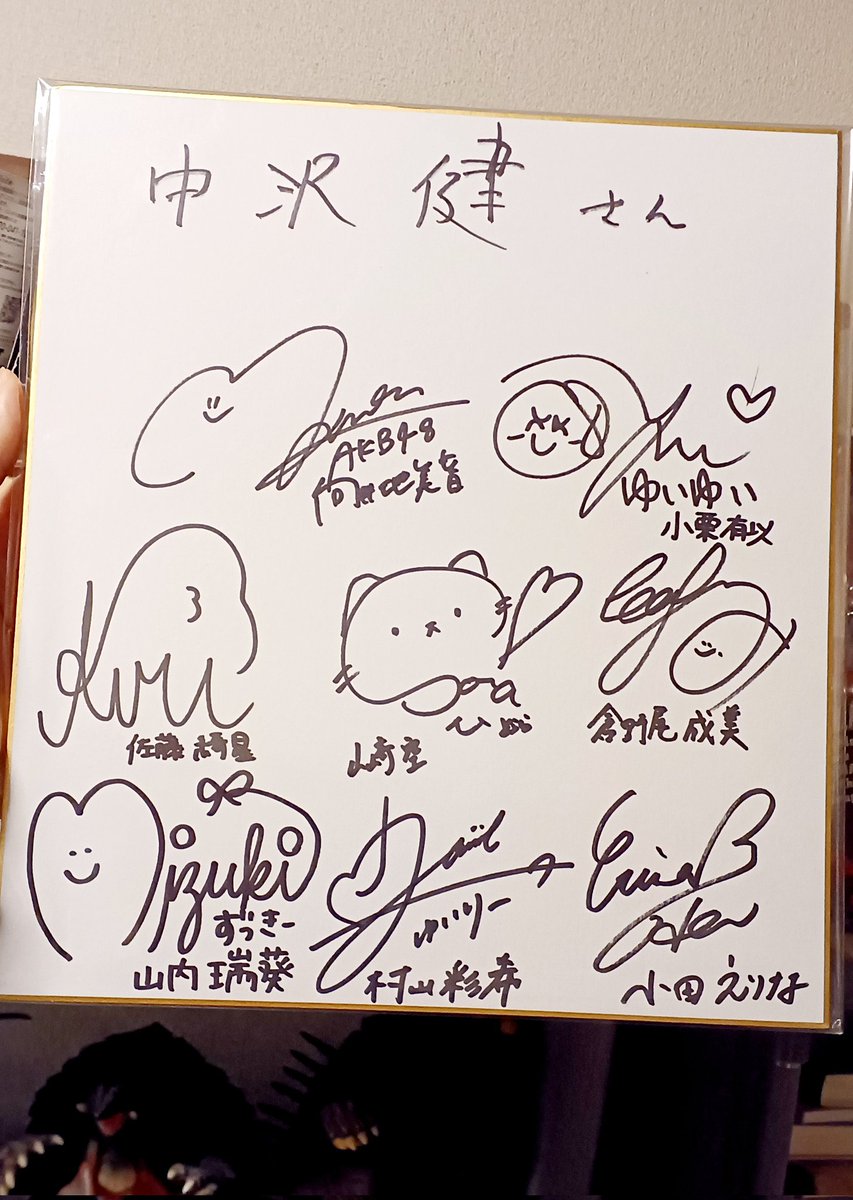 中沢 健 さん
AKB48
向井地美音
ゆいゆい
小栗有以
佐藤綺星
Sora
山﨑空
倉野尾成美
Mizuki
ずっきー
山内瑞葵
ゆいりー
村山彩希
Erina
小田えりな